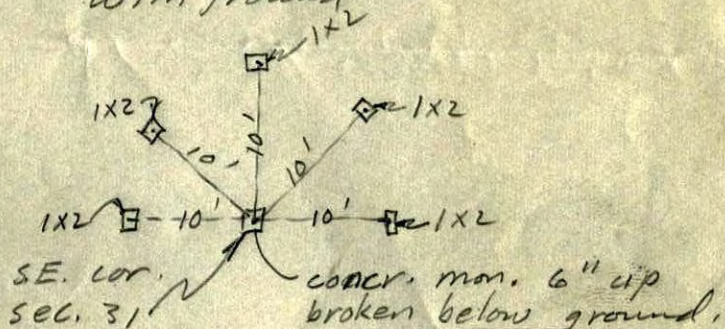 with ground
1x2
1x2
1x2
10'
10'
10'
1x2
10'
10'
1x2
S.E. cor.
sec. 31
concr. mon. 6" up
broken below ground.